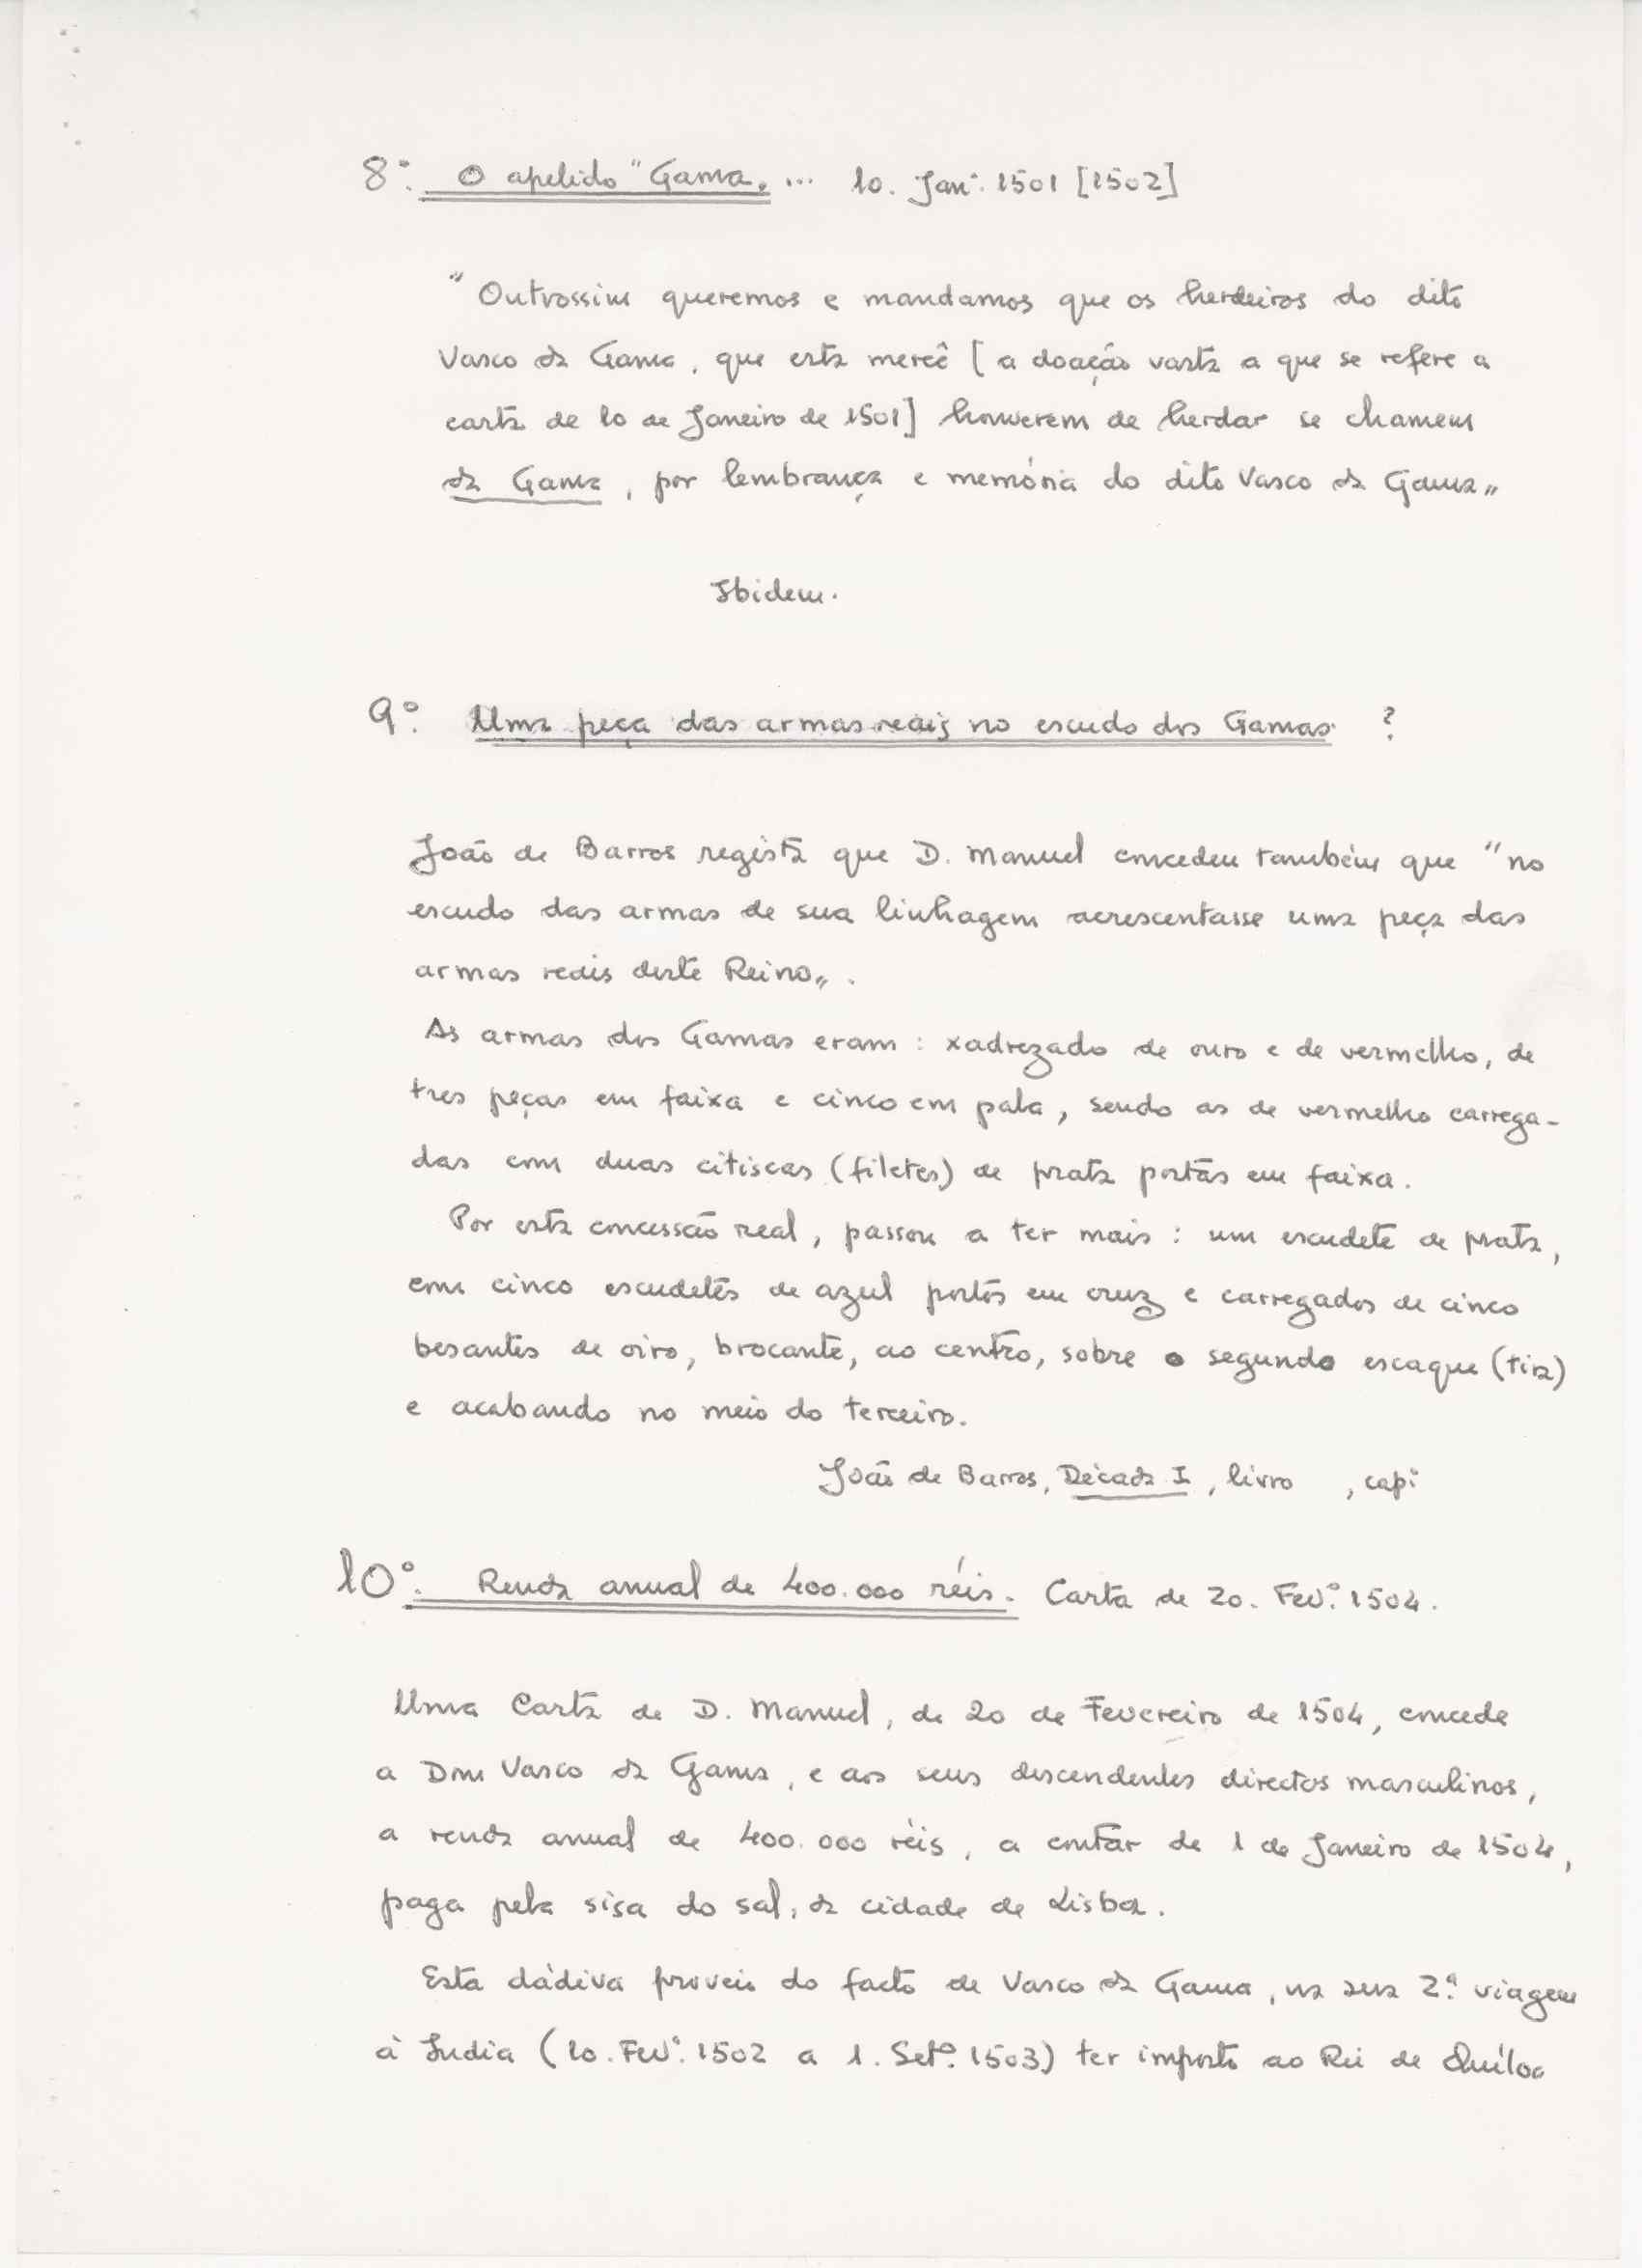 8º. O apelido "Gama„ ... 10. Janº. 1501 [1502]
"Outrossim queremos e mandamos que os herdeiros do dito
Vasco da Gama, que esta mercê [a doação vasta a que se refere a
carta de 10 de Janeiro de 1501] houverem de herdar se chamem
da Gama, por lembrança e memória do dito Vasco da Gama„
Ibidem.
9º. Uma peça das armas reais no escudo dos Gamas ?
João de Barros regista que D. Manuel concedeu também que "no
escudo das armas de sua linhagem acrescentasse uma peça das
armas reais deste Reino„.
As armas dos Gamas eram : xadrezado de ouro e de vermelho, de
tres peças em faixa e cinco em pala, sendo as de vermelho carrega-
das com duas citiscas (filetes) de prata postas em faixa.
Por esta concessão real, passou a ter mais : um escudete de prata,
com cinco escudetes de azul postos em cruz e carregados de cinco
besantes de oiro, brocante, ao centro, sobre o segundo escaque (tira)
e acabando no meio do terceiro.
João de Barros, Década I, livro , capº
10º. Renda anual de 400.000 réis. Carta de 20. Fevº. 1504.
Uma Carta de D. Manuel, de 20 de Fevereiro de 1504, concede
a Dom Vasco da Gama, e aos seus descendentes directos masculinos,
a renda anual de 400.000 réis, a contar de 1 de Janeiro de 1504,
paga pela sisa do sal, da cidade de Lisboa.
Esta dádiva proveio do facto de Vasco da Gama, na sua 2ª. viagem
à India (10. Fevº. 1502 a 1. Setº. 1503) ter imposto ao Rei de Quíloa